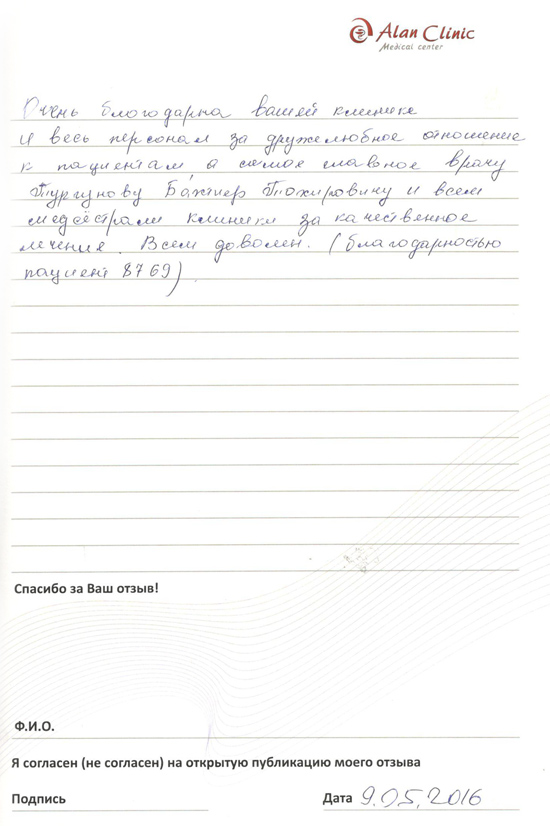 Alan Clinic
Medical center
Очень благодарна вашей клинике
и весь персонал за дружелюбное отношение
к пациентам, а самое главное врачу
Тургунову Бахтиер Тохировичу и всем
медсёстрам клиники за качественное
лечение. Всем доволен. (благодарностью
пациент 8769)
Спасибо за Ваш отзыв!
Ф.И.О.
Я согласен (не согласен) на открытую публикацию моего отзыва
Подпись
Дата 9.05.2016